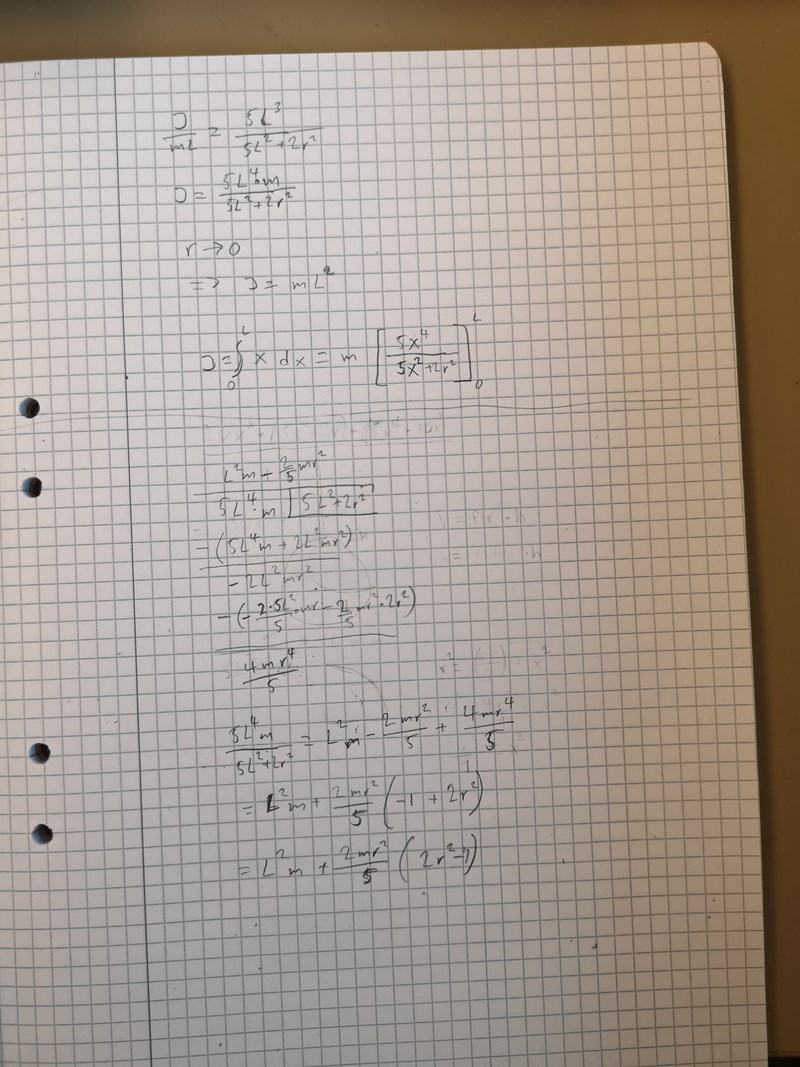 J/mL = 5L³/(5L²+2r²)
J = 5L⁴·m/(5L²+2r²)
r → 0
=> J = mL²
J = ∫₀ᴸ x dx = m [5x⁴/(5x²+2r²)]₀ᴸ
L²m - 2/5 mr²
5L⁴·m | 5L²+2r²
-(5L⁴m + 2L²mr²)
-2L²mr²
-(-2·5L²/5·mr - 2/5 mr²·2r²)
4mr⁴/5
5L⁴m/(5L²+2r²) = L²m - 2mr²/5 + 4mr⁴/5
= L²m + 2mr²/5 (-1 + 2r²)
= L²m + 2mr²/5 (2r²-1)